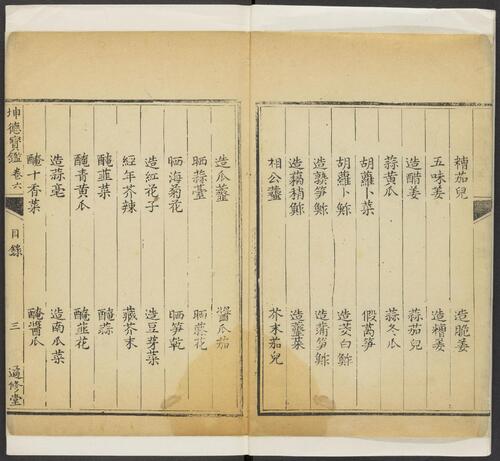 糟茄兒　造脆姜
五味姜　造糟姜
造醋姜　蒜茄兒
蒜黃瓜　蒜冬瓜
胡蘿卜菜　假萵笋
胡蘿卜鮓　造茭白鮓
造熟笋鮓　造蒲笋鮓
造藕稍鮓　造虀菜
相公虀　芥末茄兒
造瓜虀　醬瓜茄
晒蒜薹　晒藤花
晒海菊花　晒笋乾
造紅花子　造豆芽菜
經年芥辣　藏芥末
醃韮菜　醃蒜
醃青黃瓜　醃韮花
造蒜亳　造南瓜菜
醃十香菜　醃醬瓜
坤德寶鑑　卷六　目錄　三　適修堂